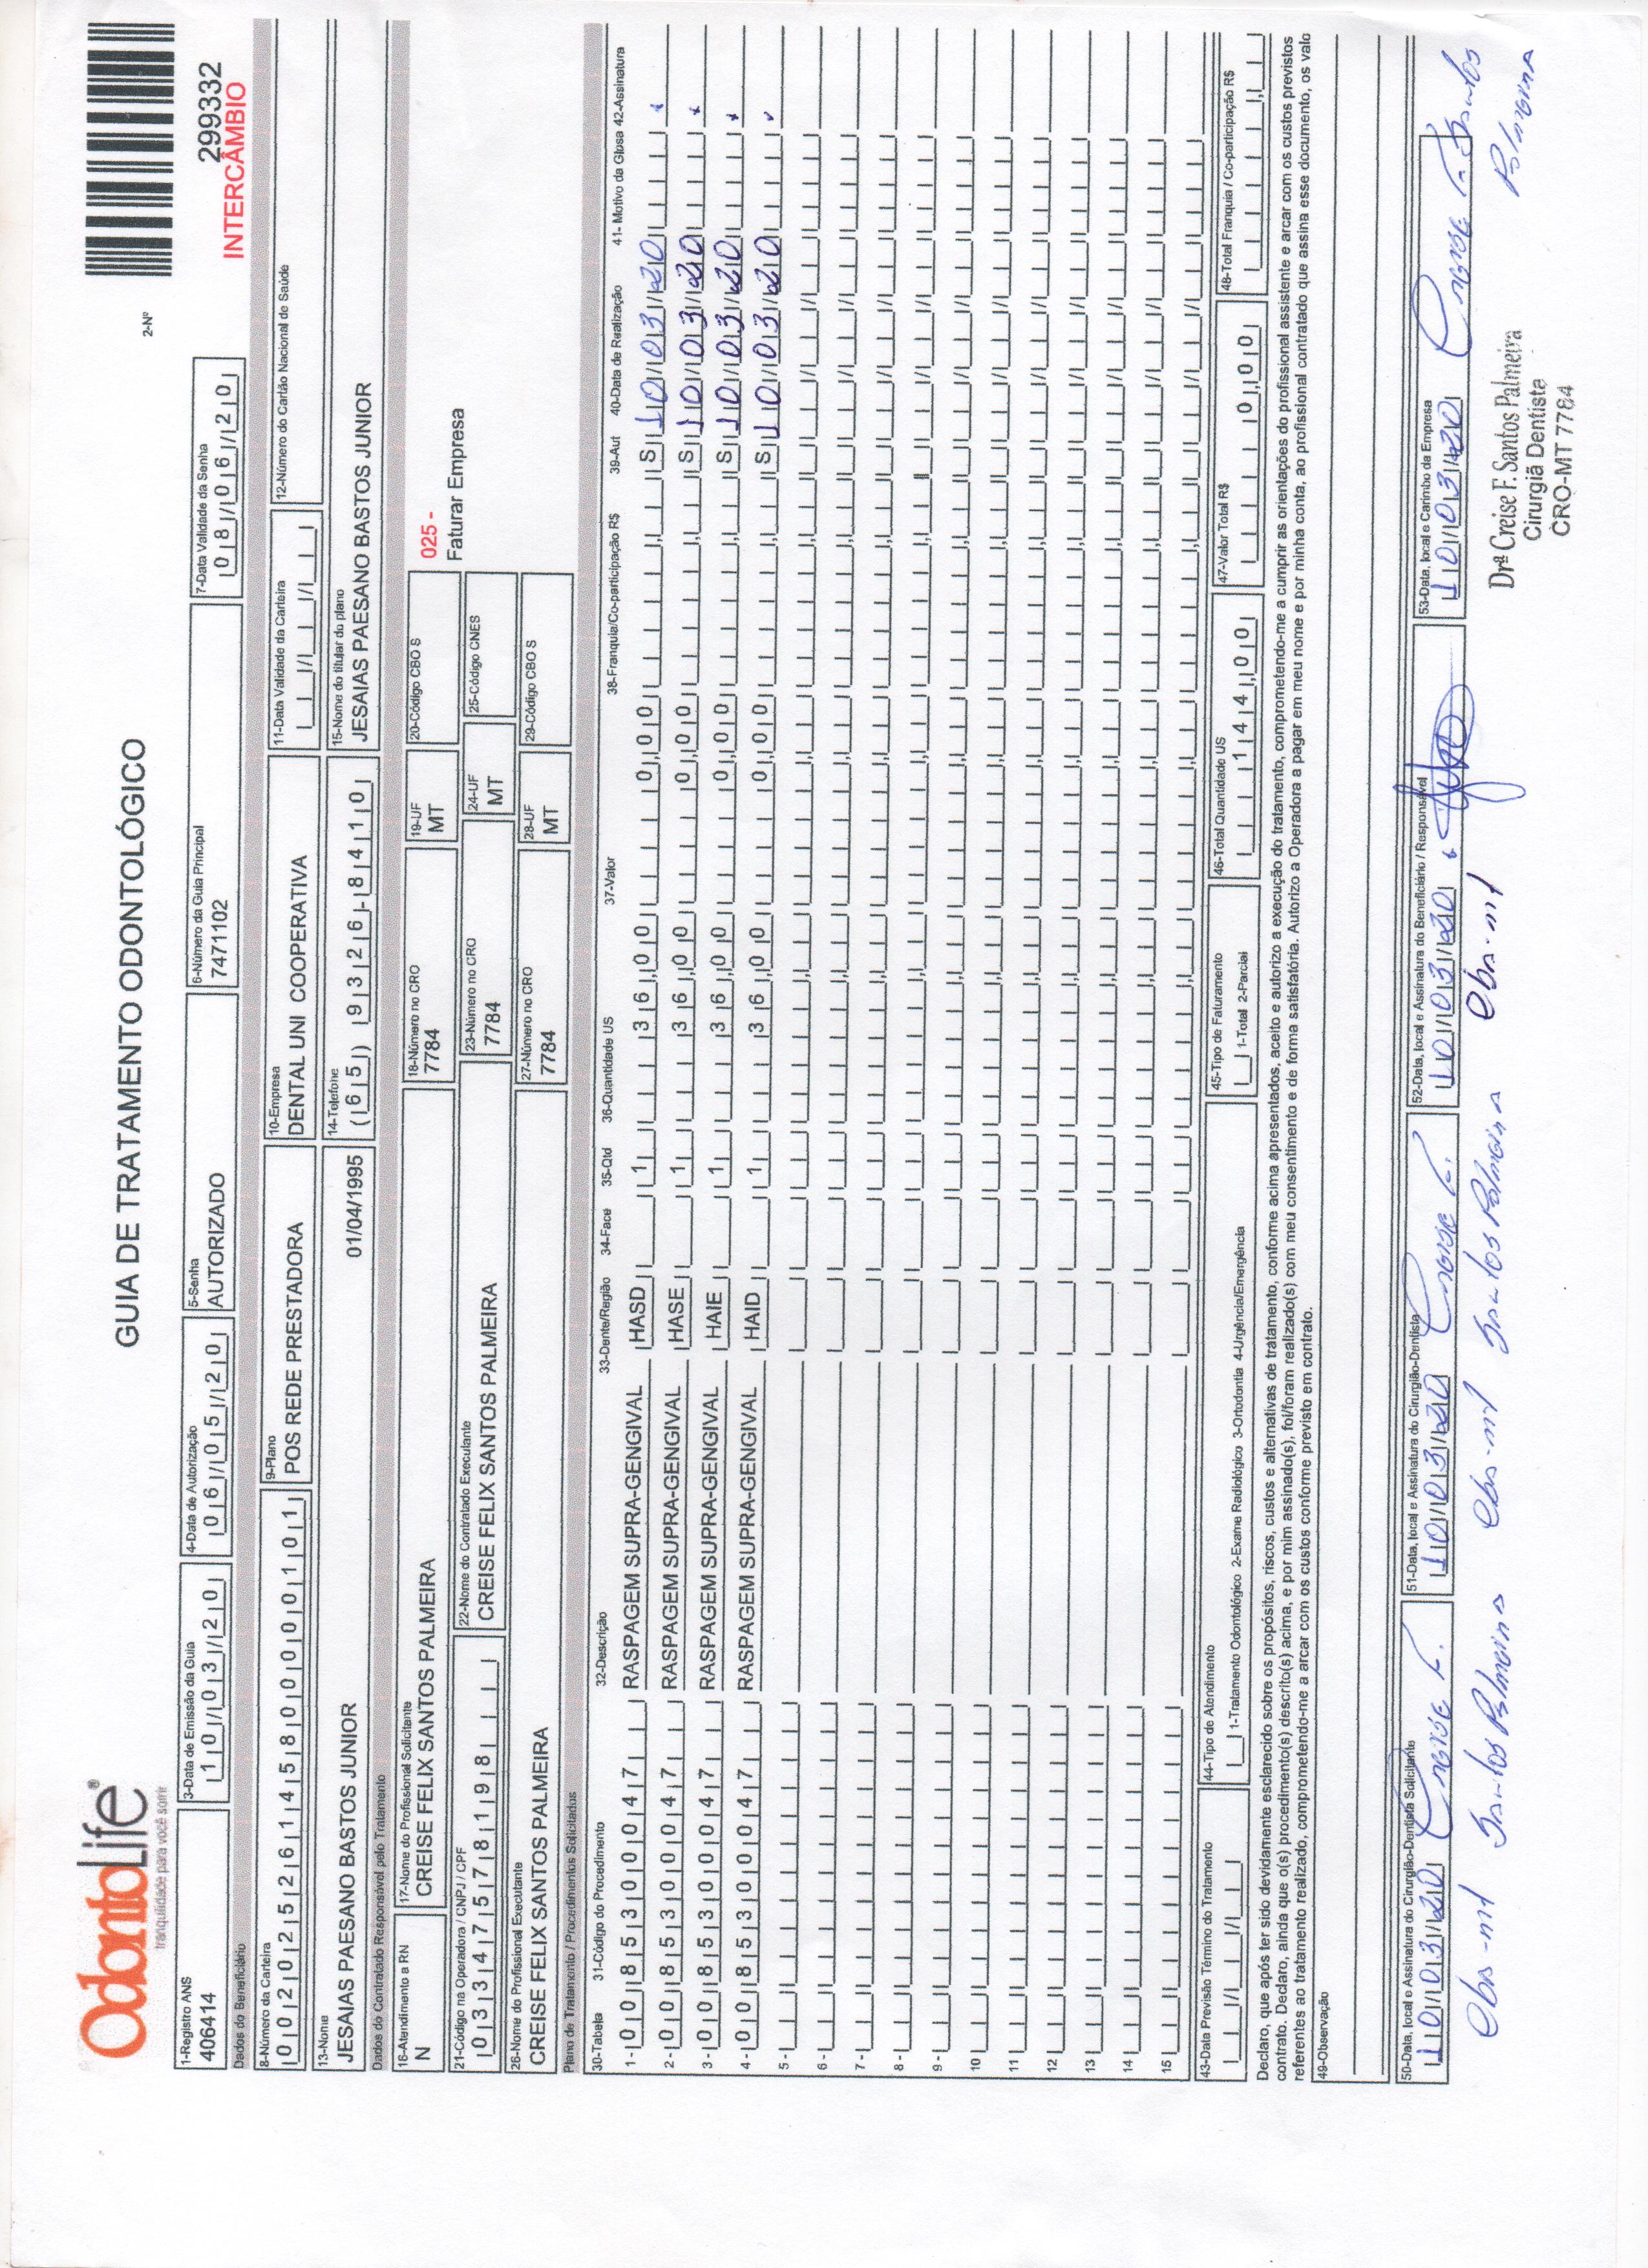 OdontoLife®
tranquilidade para você sorrir
GUIA DE TRATAMENTO ODONTOLÓGICO
2-Nº
299332
INTERCÂMBIO
1-Registro ANS 3-Data de Emissão da Guia 4-Data de Autorização 5-Senha 6-Número da Guia Principal 7-Data Validade da Senha
406414 10/03/20 06/05/20 AUTORIZADO 7471102 08/06/20
Dados do Beneficiário
8-Número da Carteira 9-Plano 10-Empresa 11-Data Validade da Carteira 12-Número do Cartão Nacional de Saúde
00202526145800000101 POS REDE PRESTADORA DENTAL UNI COOPERATIVA / /
13-Nome 14-Telefone 15-Nome do titular do plano
JESAIAS PAESANO BASTOS JUNIOR 01/04/1995 (65) 99326-8410 JESAIAS PAESANO BASTOS JUNIOR
Dados do Contratado Responsável pelo Tratamento
16-Atendimento a RN 17-Nome do Profissional Solicitante 18-Número no CRO 19-UF 20-Código CBO S
N CREISE FELIX SANTOS PALMEIRA 7784 MT
025 -
Faturar Empresa
21-Código na Operadora / CNPJ / CPF 22-Nome do Contratado Executante 23-Número no CRO 24-UF 25-Código CNES
03347578198 CREISE FELIX SANTOS PALMEIRA 7784 MT
26-Nome do Profissional Executante 27-Número no CRO 28-UF 29-Código CBO S
CREISE FELIX SANTOS PALMEIRA 7784 MT
Plano de Tratamento / Procedimentos Solicitados
30-Tabela 31-Código do Procedimento 32-Descrição 33-Dente/Região 34-Face 35-Qtd 36-Quantidade US 37-Valor 38-Franquia/Co-participação R$ 39-Aut 40-Data de Realização 41- Motivo da Glosa 42-Assinatura
1 - 00 85300047 RASPAGEM SUPRA-GENGIVAL HASD 1 36,00 0,00 S 10/03/20
2 - 00 85300047 RASPAGEM SUPRA-GENGIVAL HASE 1 36,00 0,00 S 10/03/20
3 - 00 85300047 RASPAGEM SUPRA-GENGIVAL HAIE 1 36,00 0,00 S 10/03/20
4 - 00 85300047 RASPAGEM SUPRA-GENGIVAL HAID 1 36,00 0,00 S 10/03/20
5 -
6 -
7 -
8 -
9 -
10
11
12
13
14
15
43-Data Previsão Término do Tratamento 44-Tipo de Atendimento 45-Tipo de Faturamento 46-Total Quantidade US 47-Valor Total R$ 48-Total Franquia / Co-participação R$
/ / 1-Tratamento Odontológico 2-Exame Radiológico 3-Ortodontia 4-Urgência/Emergência 1-Total 2-Parcial 144,00 0,00
Declaro, que após ter sido devidamente esclarecido sobre os propósitos, riscos, custos e alternativas de tratamento, conforme acima apresentados, aceito e autorizo a execução do tratamento, comprometendo-me a cumprir as orientações do profissional assistente e arcar com os custos previstos
contrato. Declaro, ainda que o(s) procedimento(s) descrito(s) acima, e por mim assinado(s), foi/foram realizado(s) com meu consentimento e de forma satisfatória. Autorizo a Operadora a pagar em meu nome e por minha conta, ao profissional contratado que assina esse documento, os valo
referentes ao tratamento realizado, comprometendo-me a arcar com os custos conforme previsto em contrato.
49-Observação
50-Data, local e Assinatura do Cirurgião-Dentista Solicitante 51-Data, local e Assinatura do Cirurgião-Dentista 52-Data, local e Assinatura do Beneficiário / Responsável 53-Data, local e Carimbo da Empresa
10/03/20 Creise F. 10/03/20 Creise F. 10/03/20 10/03/20 Creise F. Santos
Cba-mt Santos Palmeira Cba-mt Santos Palmeira Cba-mt Palmeira
Drª Creise F. Santos Palmeira
Cirurgiã Dentista
CRO-MT 7784